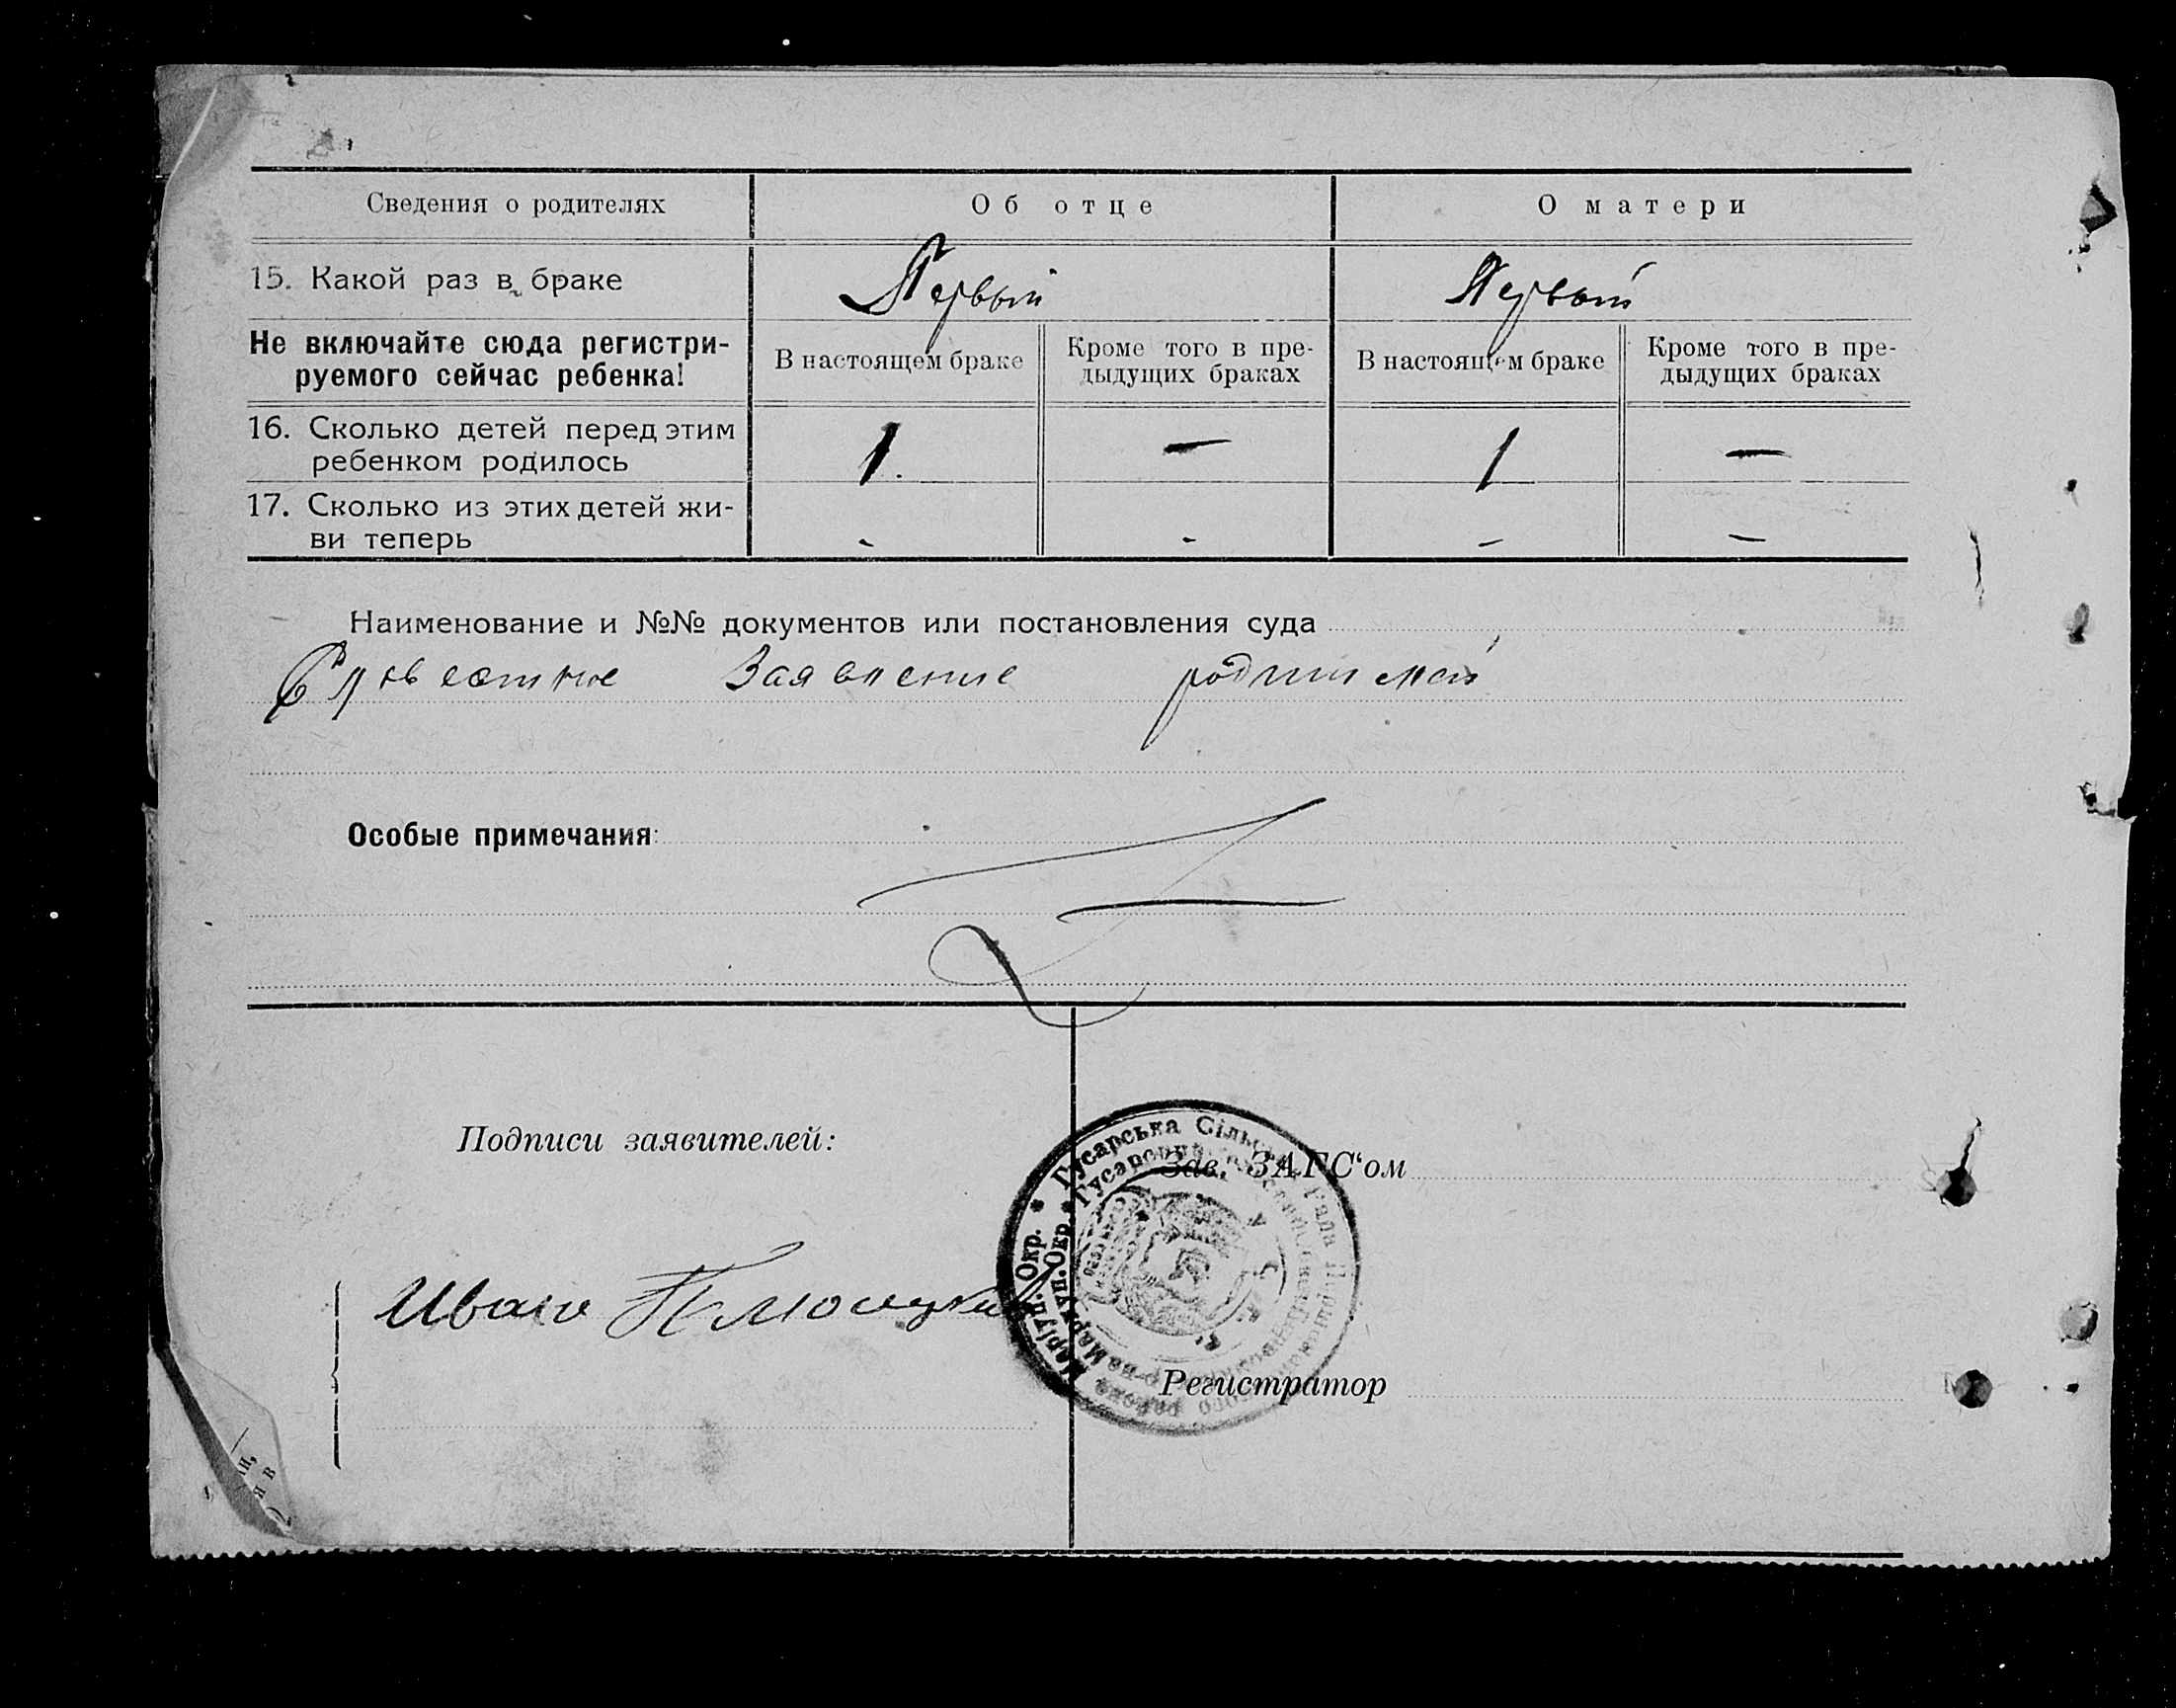 Сведения о родителях
Об отце
О матери
15. Какой раз в браке
Первый
Первый
Не включайте сюда регистри-
руемого сейчас ребенка!
В настоящем браке
Кроме того в пре-
дыдущих браках
В настоящем браке
Кроме того в пре-
дыдущих браках
16. Сколько детей перед этим
ребенком родилось
1.
—
1
—
17. Сколько из этих детей жи-
ви теперь
-
-
-
—
Наименование и №№ документов или постановления суда
Словестное Заявление родителей
Особые примечания:
Подписи заявителей:
Зав. ЗАГС‘ом
Гусарська Сільська Рада
Маріуп. Окр.
Мариуп. Окр.
Иван
Регистратор